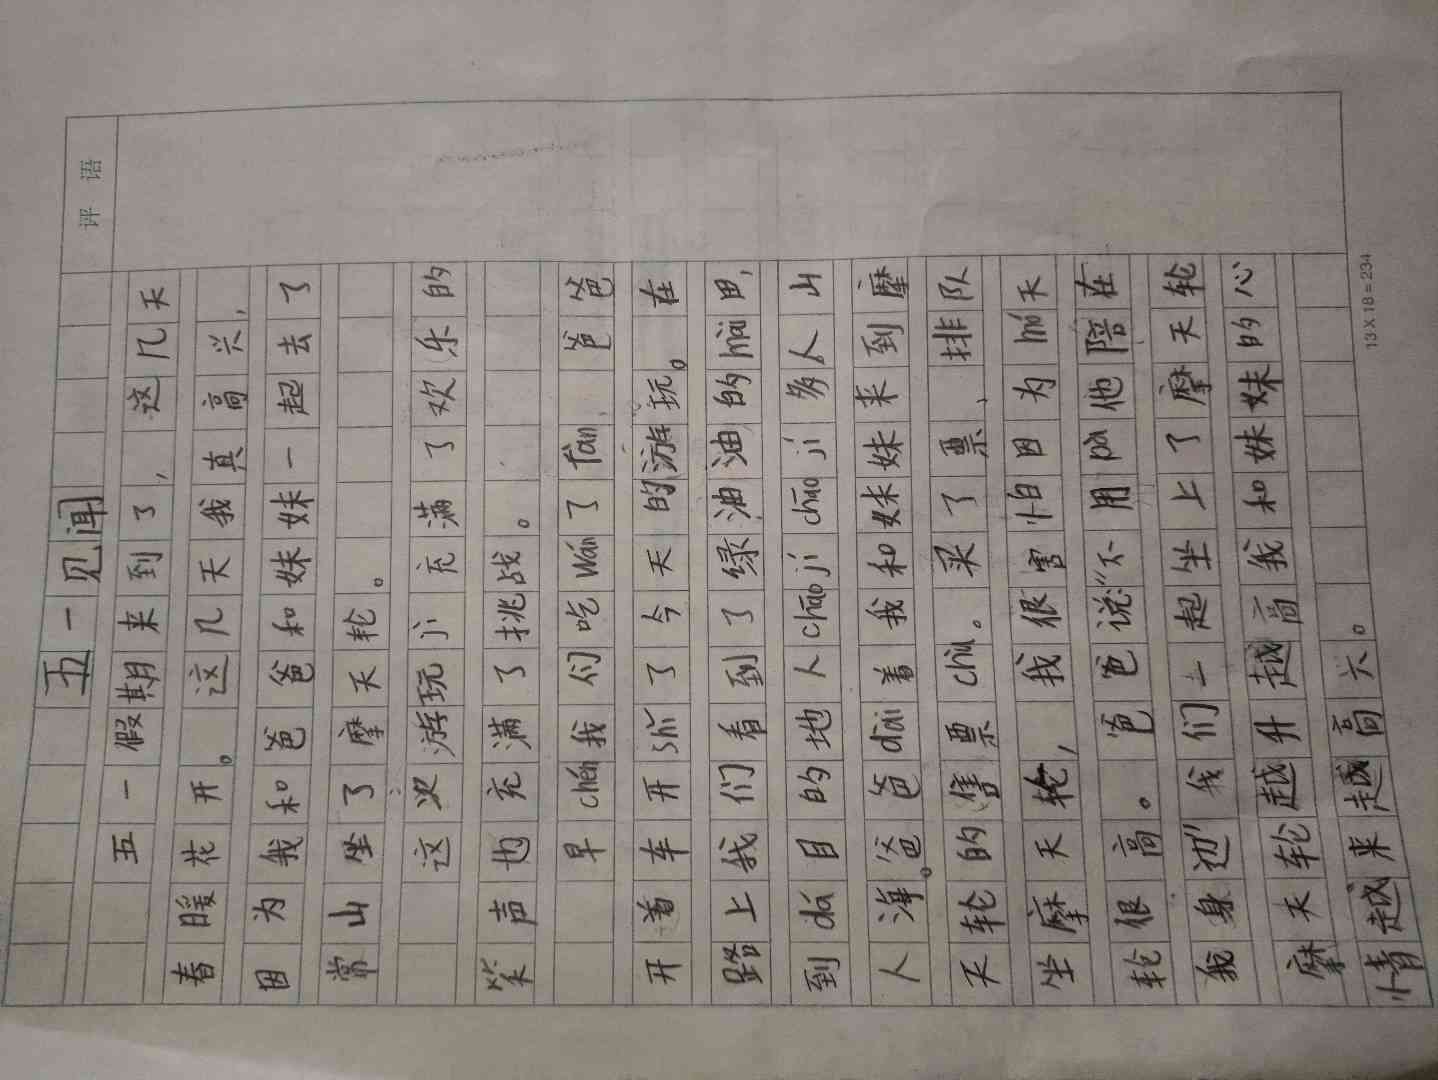 五一见闻
五一假期来到了，这几天
春暖花开。这几天我真高兴，
因为我和爸爸和妹妹一起去了
常山坐了摩天轮。
这次游玩jì充满了欢乐的
笑声也充满了挑战。
早chén我们吃wán了fàn，爸爸
开着车开shǐ了今天的游玩。在
路上我们看到了绿油油的mài田，
到dá目的地人chāo jí chāo jí多人山
人海。爸爸dài着我和妹妹来到摩
天轮的售票chù。买了票、排队
坐摩天轮，我很害怕因为mó天
轮很高。爸爸说“不用pà他陪在
我身边”我们一起坐上了摩天轮
摩天轮越升越高我和妹妹的心
情越来越高兴。
评语
13X18=234